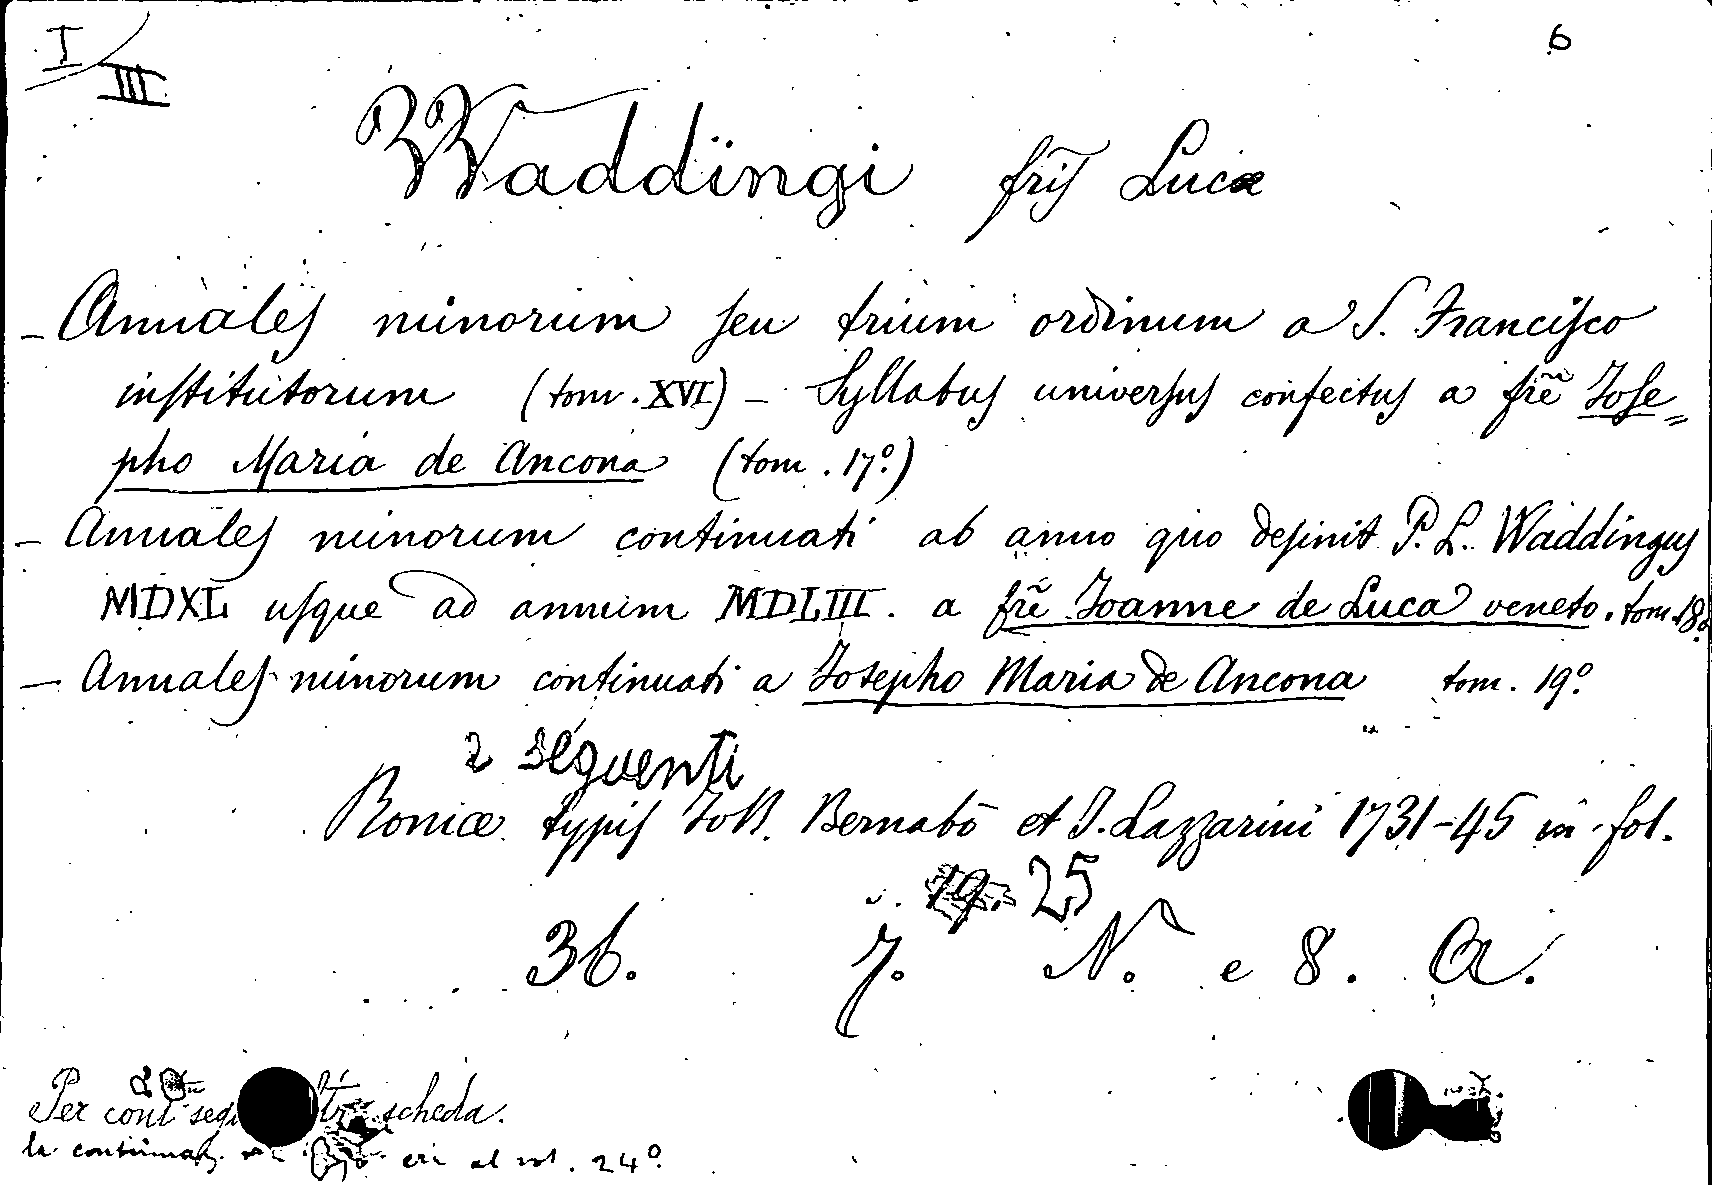 I/III
6
Waddingi fris Lucæ
- Annales minorum seu trium ordinum a S. Francisco
institutorum (tom. XVI) - Syllabus universus confectus a frẽ Jose=
pho Maria de Ancona (tom. 17º)
- Annales minorum continuati ab anno quo definit P. L. Waddingus
MDXL usque ad annum MDLIII. a frẽ Joanne de Luca veneto. tom. 18º
- Annales minorum continuati a Josepho Maria de Ancona tom. 19º
e seguenti
Romæ typis Bernabò et J. Lazzarini 1731-45 in fol.
v. 19. 25
36. 7. N. e 8. A.
Per scheda.
la al vol. 24º